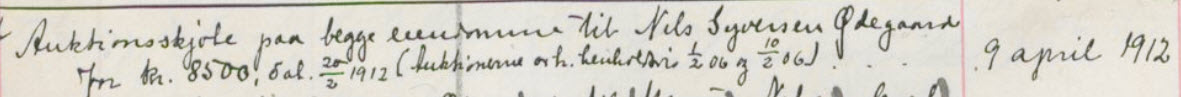 Auktionsskjøte paa begge eiendomme til Nils Syversen Ødegaard 9 april 1912
for kr. 8500, dat. 20/2 1912 (Auktionerne avh. henholdsvis 1/2 06 og 10/2 06) . . .